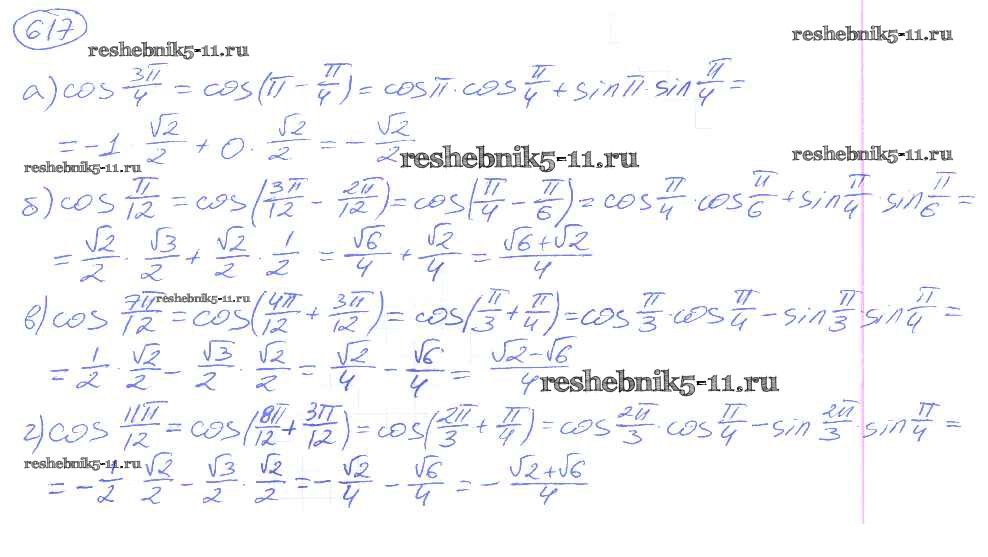 617
reshebnik5-11.ru reshebnik5-11.ru
а) cos 3π/4 = cos(π − π/4) = cosπ · cos π/4 + sinπ · sin π/4 =
= −1 · √2/2 + 0 · √2/2 = − √2/2
reshebnik5-11.ru reshebnik5-11.ru reshebnik5-11.ru
б) cos π/12 = cos(3π/12 − 2π/12) = cos(π/4 − π/6) = cos π/4 · cos π/6 + sin π/4 · sin π/6 =
= √2/2 · √3/2 + √2/2 · 1/2 = √6/4 + √2/4 = (√6+√2)/4
reshebnik5-11.ru
в) cos 7π/12 = cos(4π/12 + 3π/12) = cos(π/3 + π/4) = cos π/3 · cos π/4 − sin π/3 · sin π/4 =
= 1/2 · √2/2 − √3/2 · √2/2 = √2/4 − √6/4 = (√2−√6)/4
reshebnik5-11.ru
г) cos 11π/12 = cos(8π/12 + 3π/12) = cos(2π/3 + π/4) = cos 2π/3 · cos π/4 − sin 2π/3 · sin π/4 =
reshebnik5-11.ru
= − 1/2 √2/2 − √3/2 · √2/2 = − √2/4 − √6/4 = − (√2+√6)/4